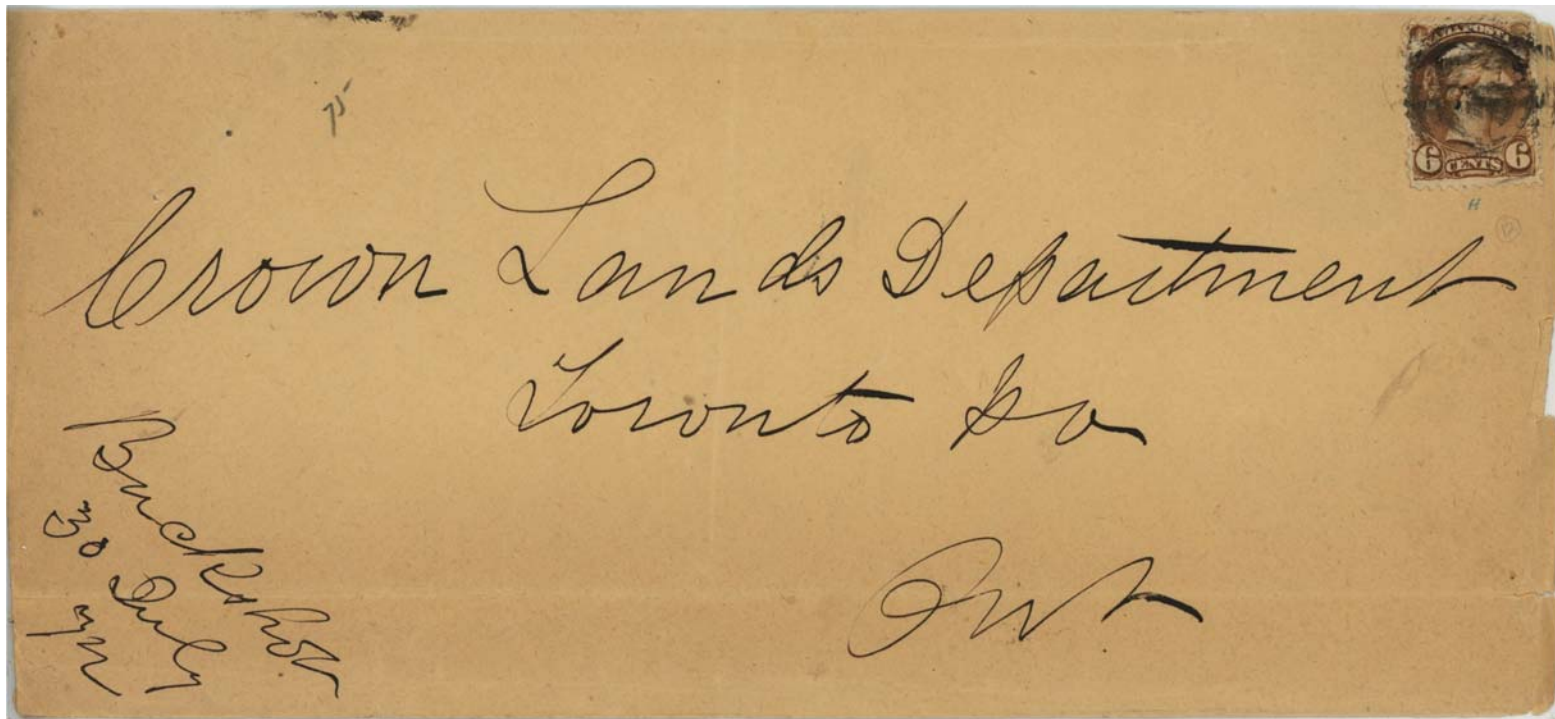 75-
6 CENTS 6
H
Crown Lands Department
Toronto P O
Ont
Buckshot
30 July